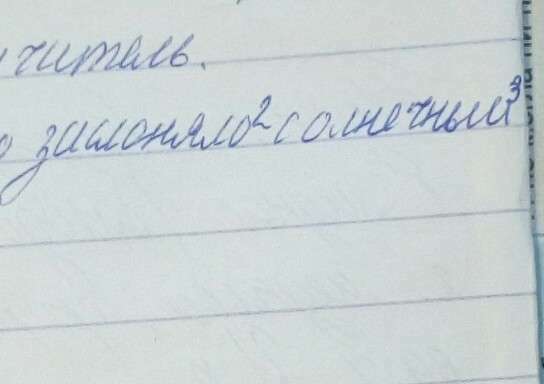 читель.
заслоняло² солнечный³